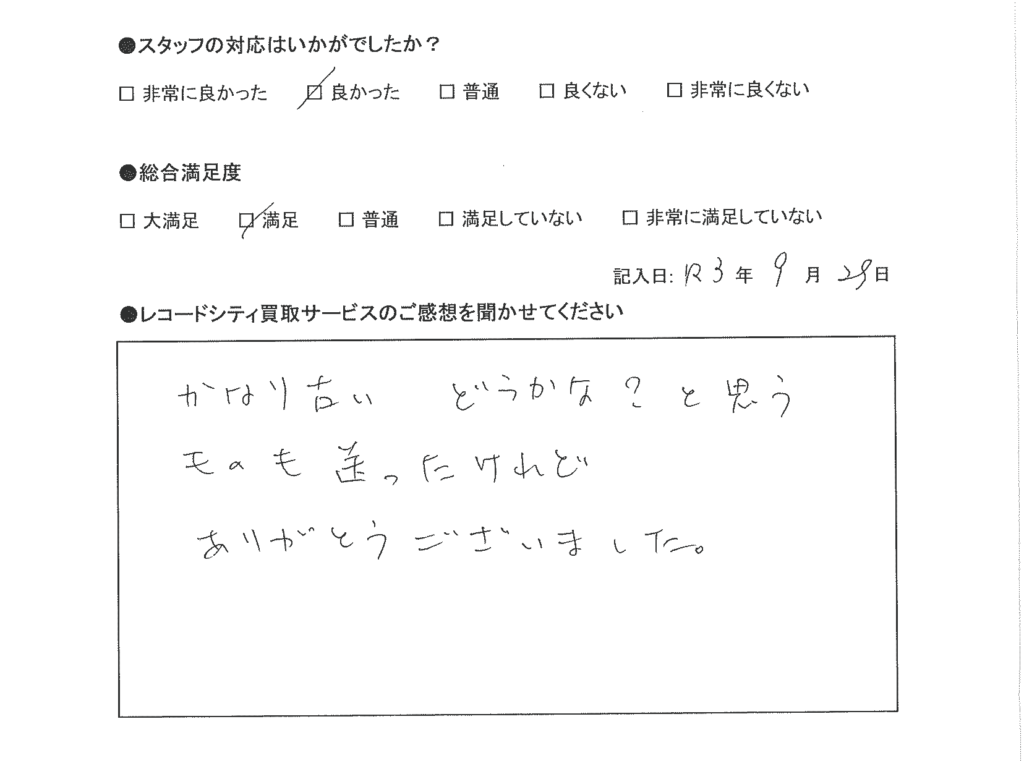 ●スタッフの対応はいかがでしたか？
□ 非常に良かった ☑ 良かった □ 普通 □ 良くない □ 非常に良くない
●総合満足度
□ 大満足 ☑ 満足 □ 普通 □ 満足していない □ 非常に満足していない
記入日: R3 年 9 月 29日
●レコードシティ買取サービスのご感想を聞かせてください
かなり古い どうかな？と思う
モノも送ったけれど
ありがとうございました。